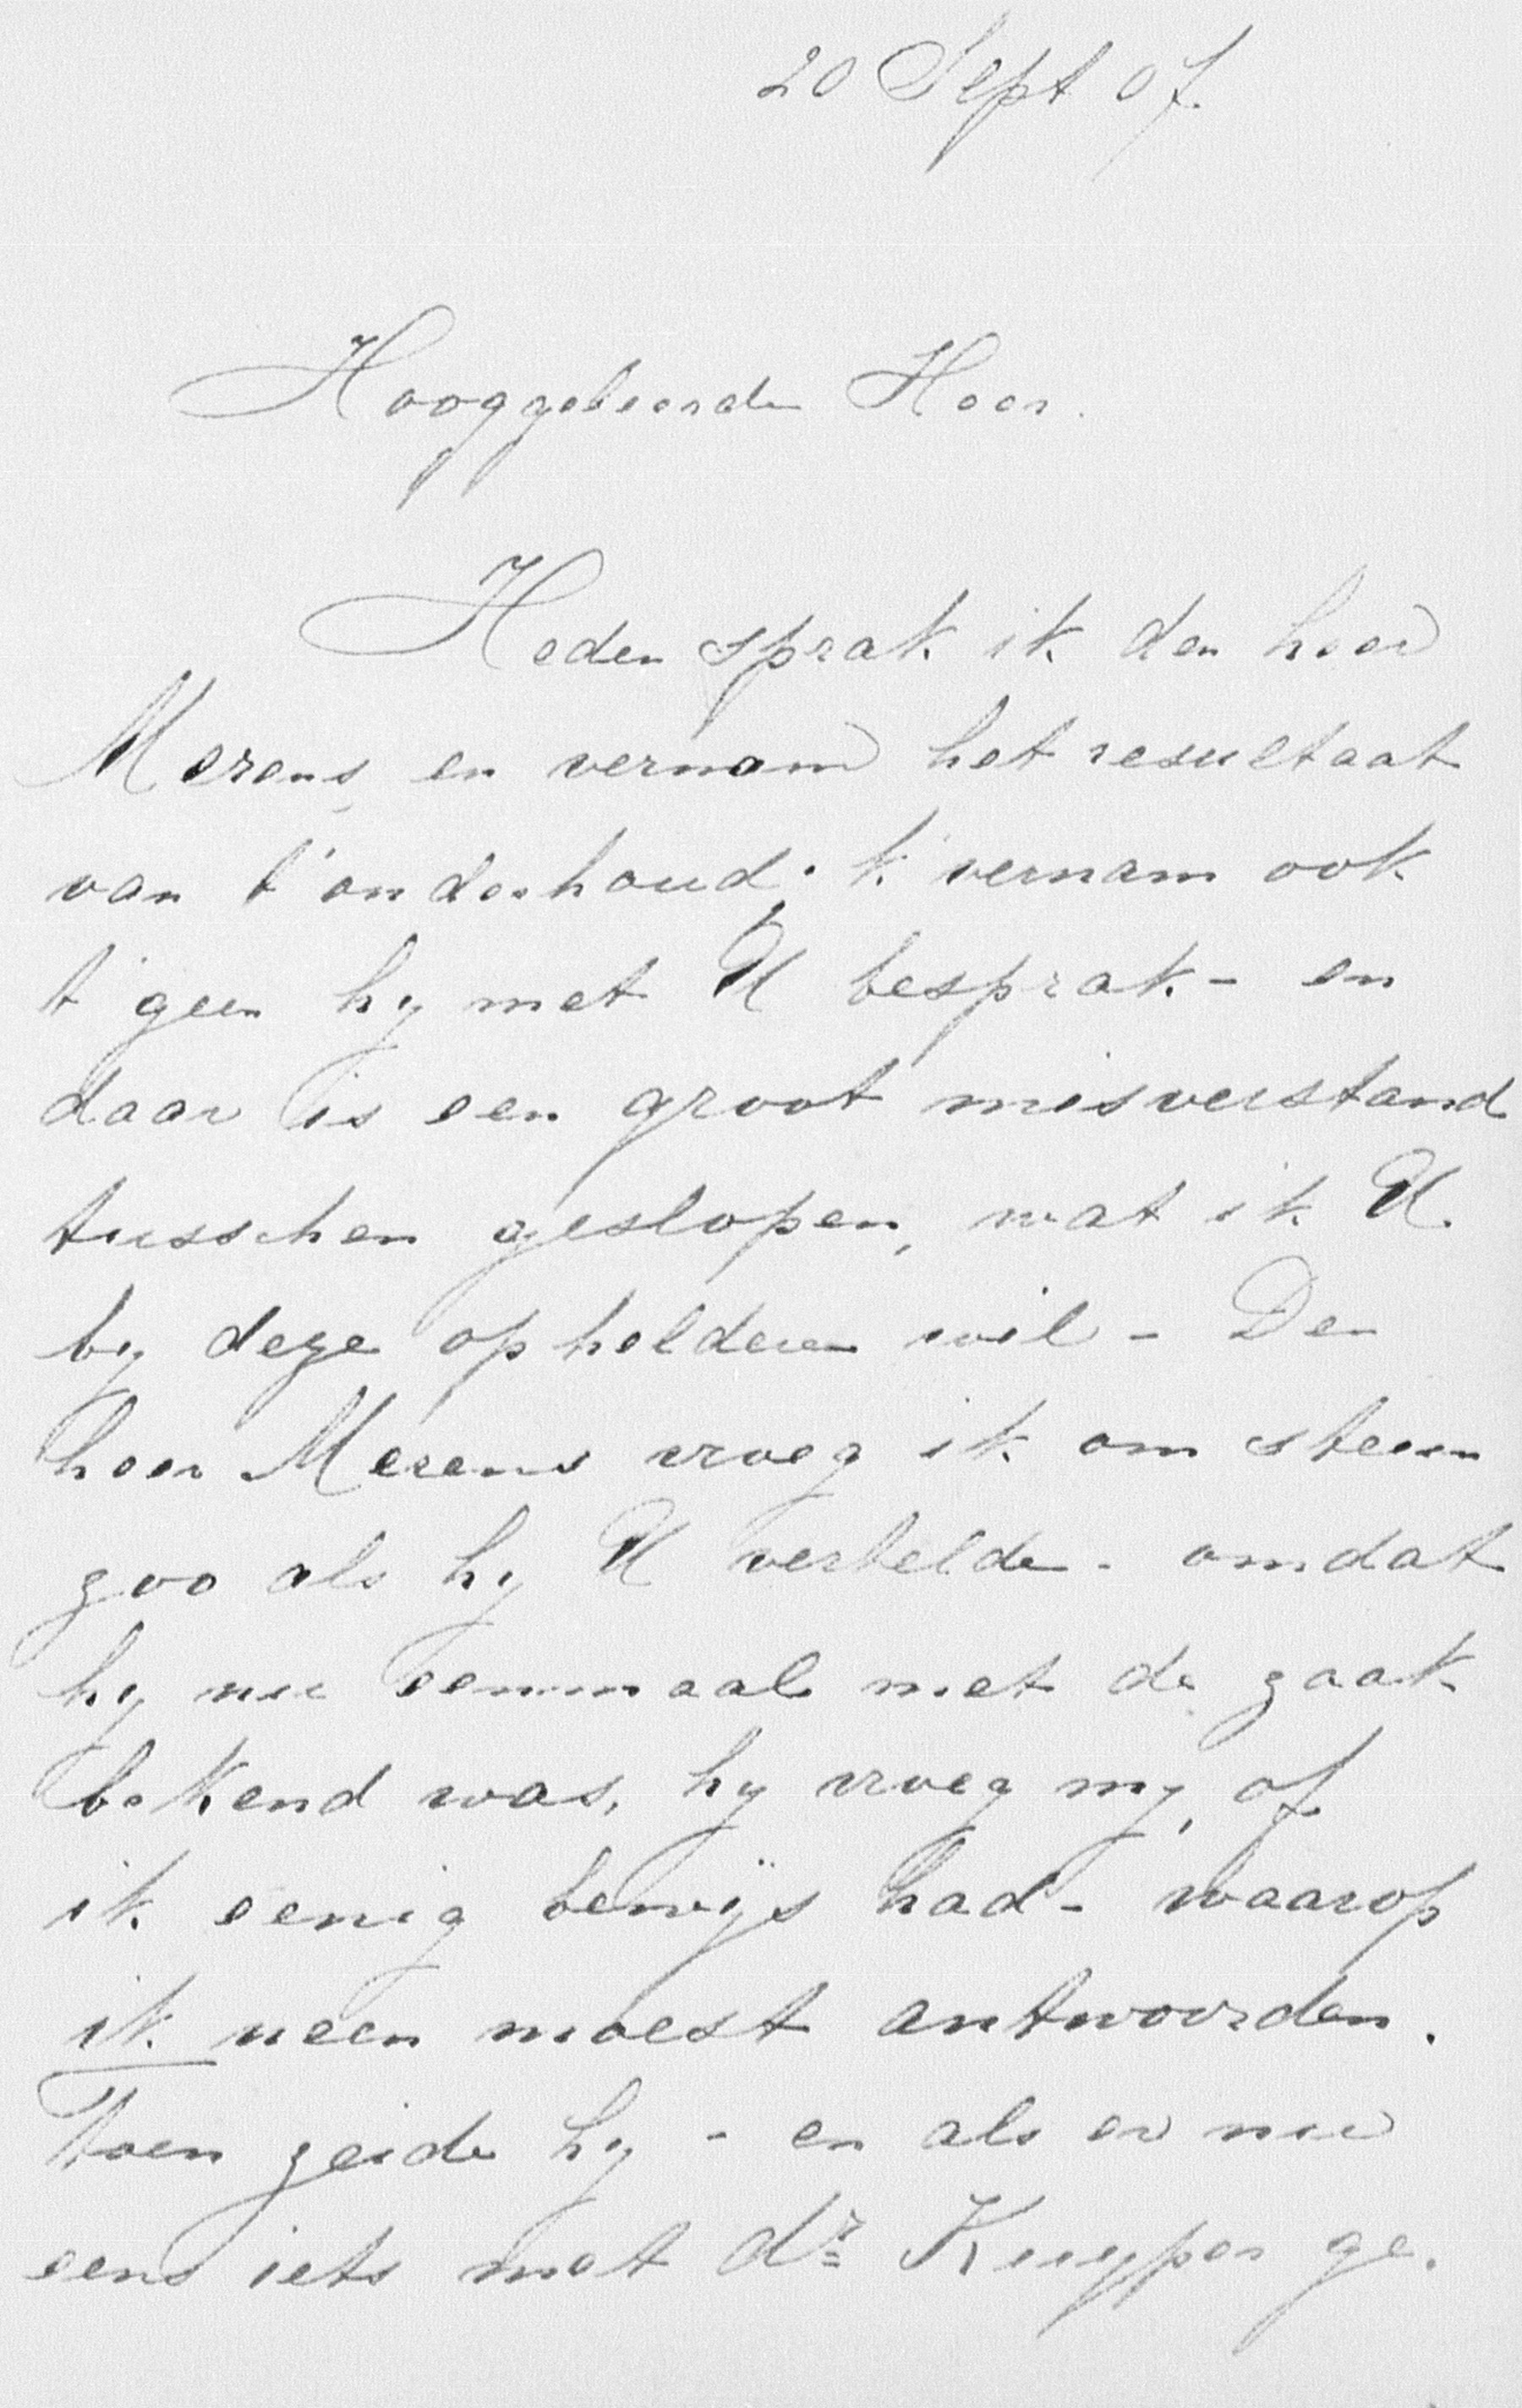 20 Sept 07.
Hooggeleerde Heer.
Heden sprak ik den heer
Merens en vernam het resultaat
van t'onderhoud. k vernam ook
t'geen hy met U besprak - en
daar is een groot misverstand
tusschen geslopen, wat ik U.
by deze ophelderen wil - Den
heer Merens vroeg ik om steun
zoo als hy U vertelde - omdat
hy nu eenmaal met de zaak
bekend was, hy vroeg my, of
ik eenig bewijs had - waarop
ik neen moest antwoorden.
Toen zeide hy - en als er nu
eens iets met dr Kuyper ge.